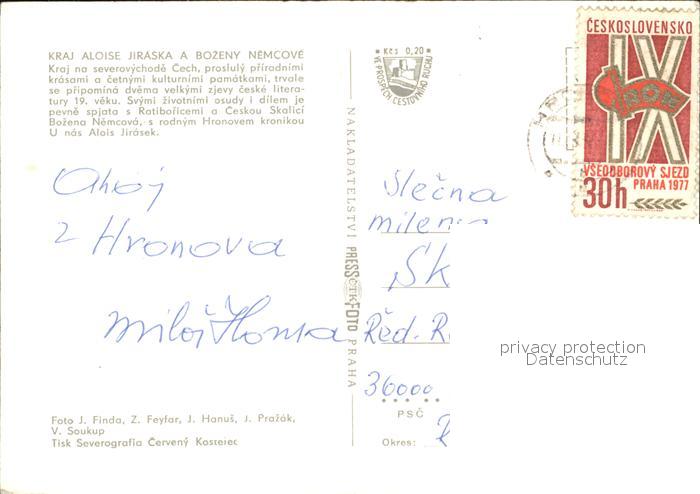 KRAJ ALOISE JIRÁSKA A BOŽENY NĚMCOVÉ
Kraj na severovýchodě Čech, proslulý přírodními
krásami a četnými kulturními památkami, trvale
se připomíná dvěma velkými zjevy české litera-
tury 19. věku. Svými životními osudy i dílem je
pevně spjata s Ratibořicemi a Českou Skalicí
Božena Němcová, s rodným Hronovem kronikou
U nás Alois Jirásek.
Ahoj
z Hronova
Miloš Honsa
Foto J. Finda, Z. Feyfar, J. Hanuš, J. Pražák,
V. Soukup
Tisk Severografia Červený Kostelec
NAKLADATELSTVÍ PRESSFOTO PRAHA
ČTK
Kčs 0,20
VE PROSPĚCH CESTOVNÍHO RUCHU
ČESKOSLOVENSKO
IX
ROH
VŠEODBOROVÝ SJEZD
PRAHA 1977
30h
Slečna
milen
Sk
Řed. R
36000
PSČ
Okres:
privacy protection
Datenschutz